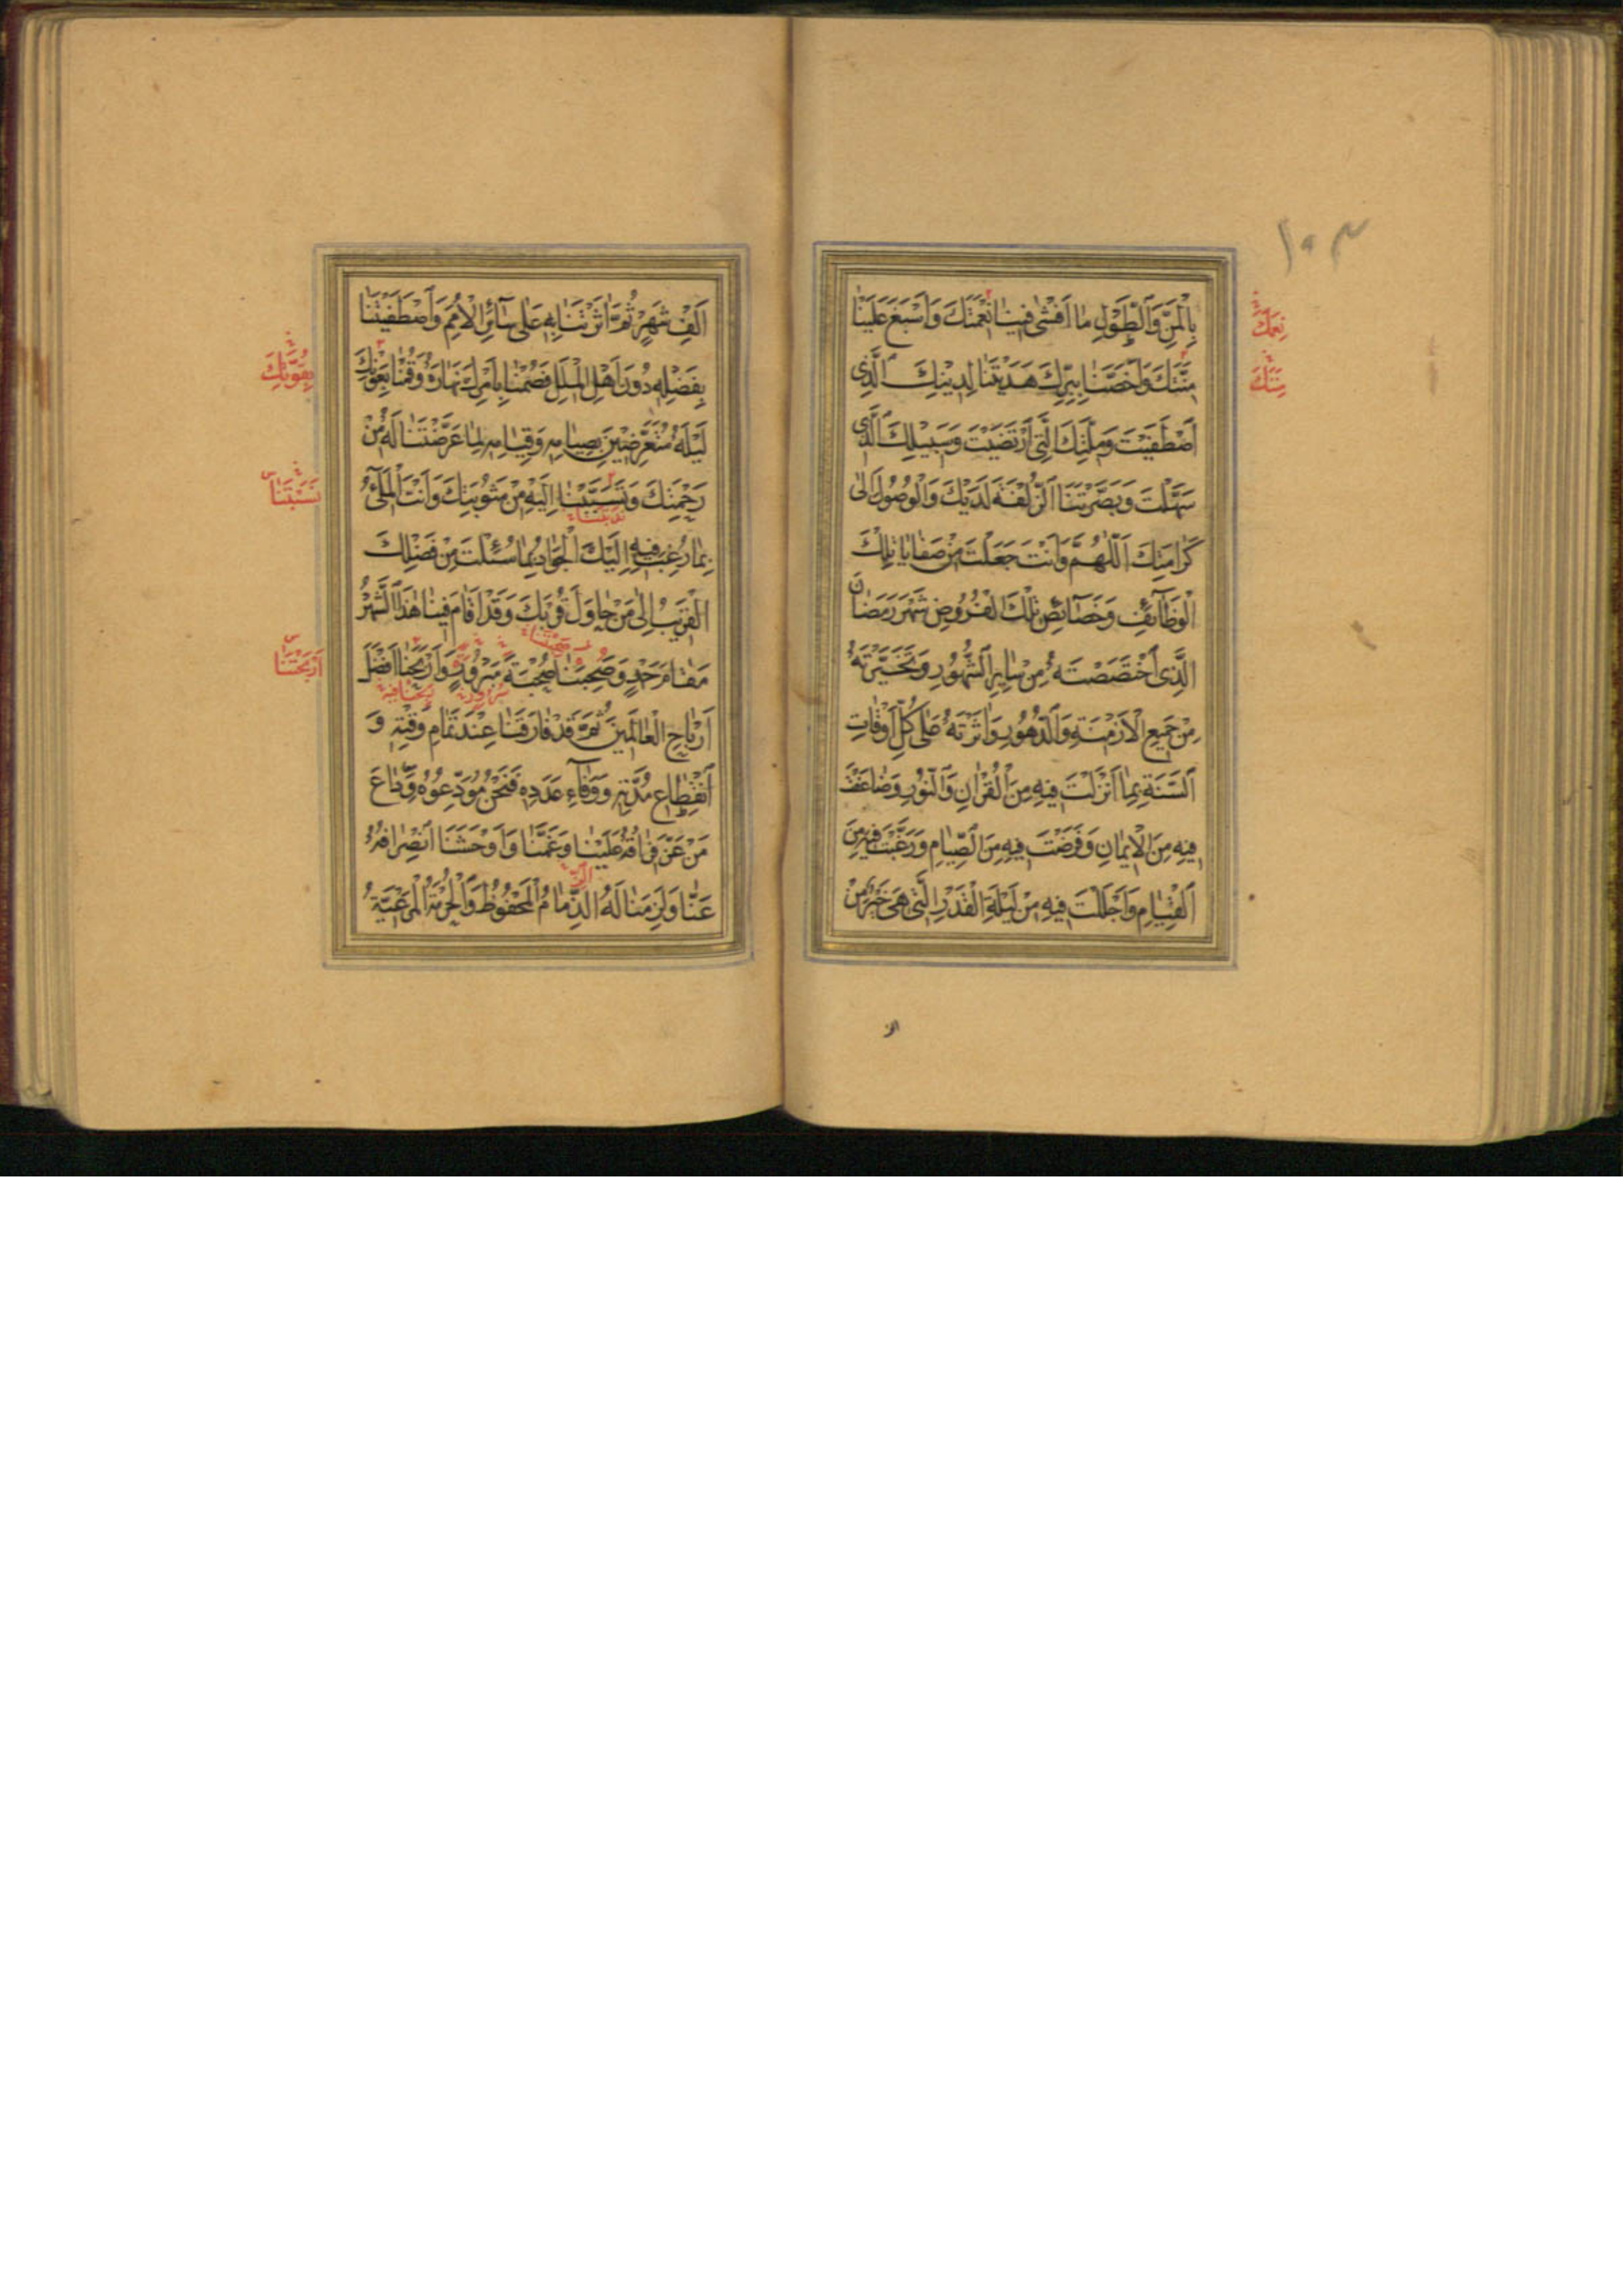 ١٠٣
بِالْمَنِّ وَالطَّوْلِ مَا اَفْشٰى فِينَا نِعْمَتَكَ وَاَسْبَغَ عَلَيْنَا
نِعَمَكَ
مِنَّتَكَ وَاَخَصَّنَا بِبِرِّكَ هَدَيْتَنَا لِدِينِكَ الَّذِى
مِنَنَكَ
اصْطَفَيْتَ وَمِلَّتِكَ الَّتِى ارْتَضَيْتَ وَسَبِيلِكَ الَّذِى
سَهَّلْتَ وَبَصَّرْتَنَا الزُّلْفَةَ لَدَيْكَ وَالْوُصُولَ اِلٰى
كَرَامَتِكَ اَللّٰهُمَّ وَاَنْتَ جَعَلْتَ مِنْ صَفَايَا تِلْكَ
الْوَظَآئِفِ وَخَصَآئِصِ تِلْكَ الْفُرُوضِ شَهْرَ رَمَضَانَ
الَّذِى اخْتَصَصْتَهُ مِنْ سَايِرِ الشُّهُورِ وَتَخَيَّرْتَهُ
مِنْ جَمِيعِ الْاَزْمِنَةِ وَالدُّهُورِ وَاٰثَرْتَهُ عَلٰى كُلِّ اَوْقَاتِ
السَّنَةِ بِمَا اَنْزَلْتَ فِيهِ مِنَ الْقُرْاٰنِ وَالنُّورِ وَضَاعَفْتَ
فِيهِ مِنَ الْاِيمَانِ وَفَرَضْتَ فِيهِ مِنَ الصِّيَامِ وَرَغَّبْتَ فِيهِ مِنَ
الْقِيَامِ وَاَجْلَلْتَ فِيهِ مِنْ لَيْلَةِ الْقَدْرِ الَّتِى هِىَ خَيْرٌ مِنْ
اَلْفِ شَهْرٍ ثُمَّ اٰثَرْتَنَا بِهِ عَلٰى سَآئِرِ الْاُمَمِ وَاصْطَفَيْتَنَا
بِفَضْلِهِ دُونَ اَهْلِ الْمِلَلِ فَصُمْنَا بِاَمْرِكَ نَهَارَهُ وَقُمْنَا بِعَوْنِكَ
بِقُوَّتِكَ
لَيْلَهُ مُتَعَرِّضِينَ بِصِيَامِهِ وَقِيَامِهِ لِمَا عَرَّضْتَنَا لَهُ مِنْ
رَحْمَتِكَ وَتَسَبَّبْنَا اِلَيْهِ مِنْ مَثُوبَتِكَ وَاَنْتَ الْمَلِىُّ
بِمَا رُغِبَ فِيهِ اِلَيْكَ الْجَوَادُ بِمَا سُئِلْتَ مِنْ فَضْلِكَ
الْقَرِيبُ اِلٰى مَنْ حَاوَلَ قُرْبَكَ وَقَدْ اَقَامَ فِينَا هٰذَا الشَّهْرُ
مَقَامَ حَمْدٍ وَصَحِبَنَا صُحْبَةَ مَبْرُورٍ وَاَرْبَحَنَا اَفْضَلَ
اَرْبَحْتَنَا
اَرْبَاحِ الْعَالَمِينَ ثُمَّ قَدْ فَارَقَنَا عِنْدَ تَمَامِ وَقْتِهِ وَ
انْقِطَاعِ مُدَّتِهِ وَوَفَآءِ عَدَدِهِ فَنَحْنُ مُوَدِّعُوهُ وَدَاعَ
مَنْ عَزَّ فِرَاقُهُ عَلَيْنَا وَغَمَّنَا وَاَوْحَشَنَا انْصِرَافُهُ
عَنَّا وَلَزِمَنَا لَهُ الذِّمَامُ الْمَحْفُوظُ وَالْحُرْمَةُ الْمَرْعِيَّةُ